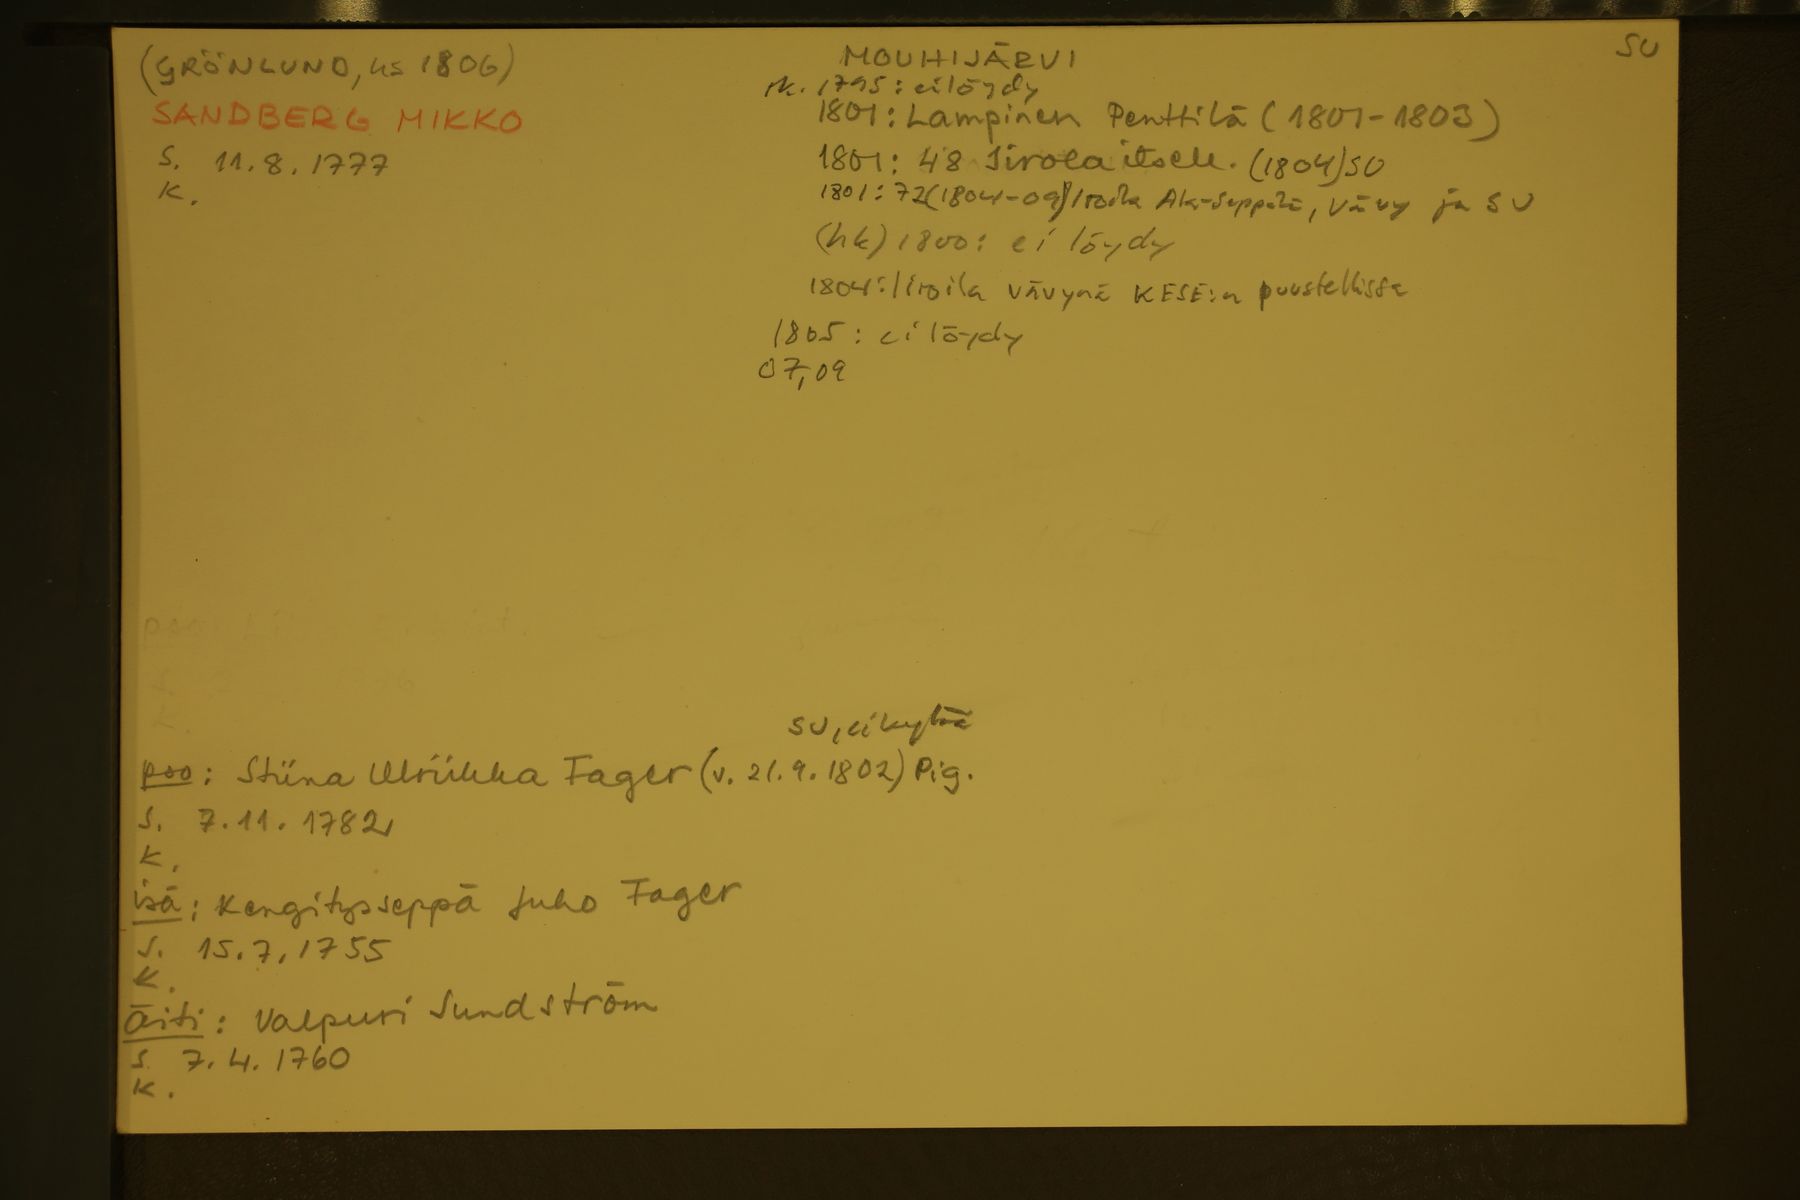 (GRÖNLUND, ks 1806)
SANDBERG MIKKO
s. 11.8.1777
k.
SU
MOUHIJÄRVI
rk. 1795: ei löydy
1801: Lampinen Penttilä (1801-1803)
1801: 48 Iirola itsell. (1804) SU
1801: 72 (1804-09) Iiroila Ala-Seppälä, vävy ja SU
(hk) 1800: ei löydy
1804: Iiroila vävynä KESE:n puustellissa
1805: ei löydy
07,09
SU, ei kylää
pso: Stiina Ulriikka Fager (v. 21.9.1802) Pig.
s. 7.11.1782
k.
isä: Kengitysseppä Juho Fager
s. 15.7.1755
k.
Äiti: Valpuri Sundström
s. 7.4.1760
k.